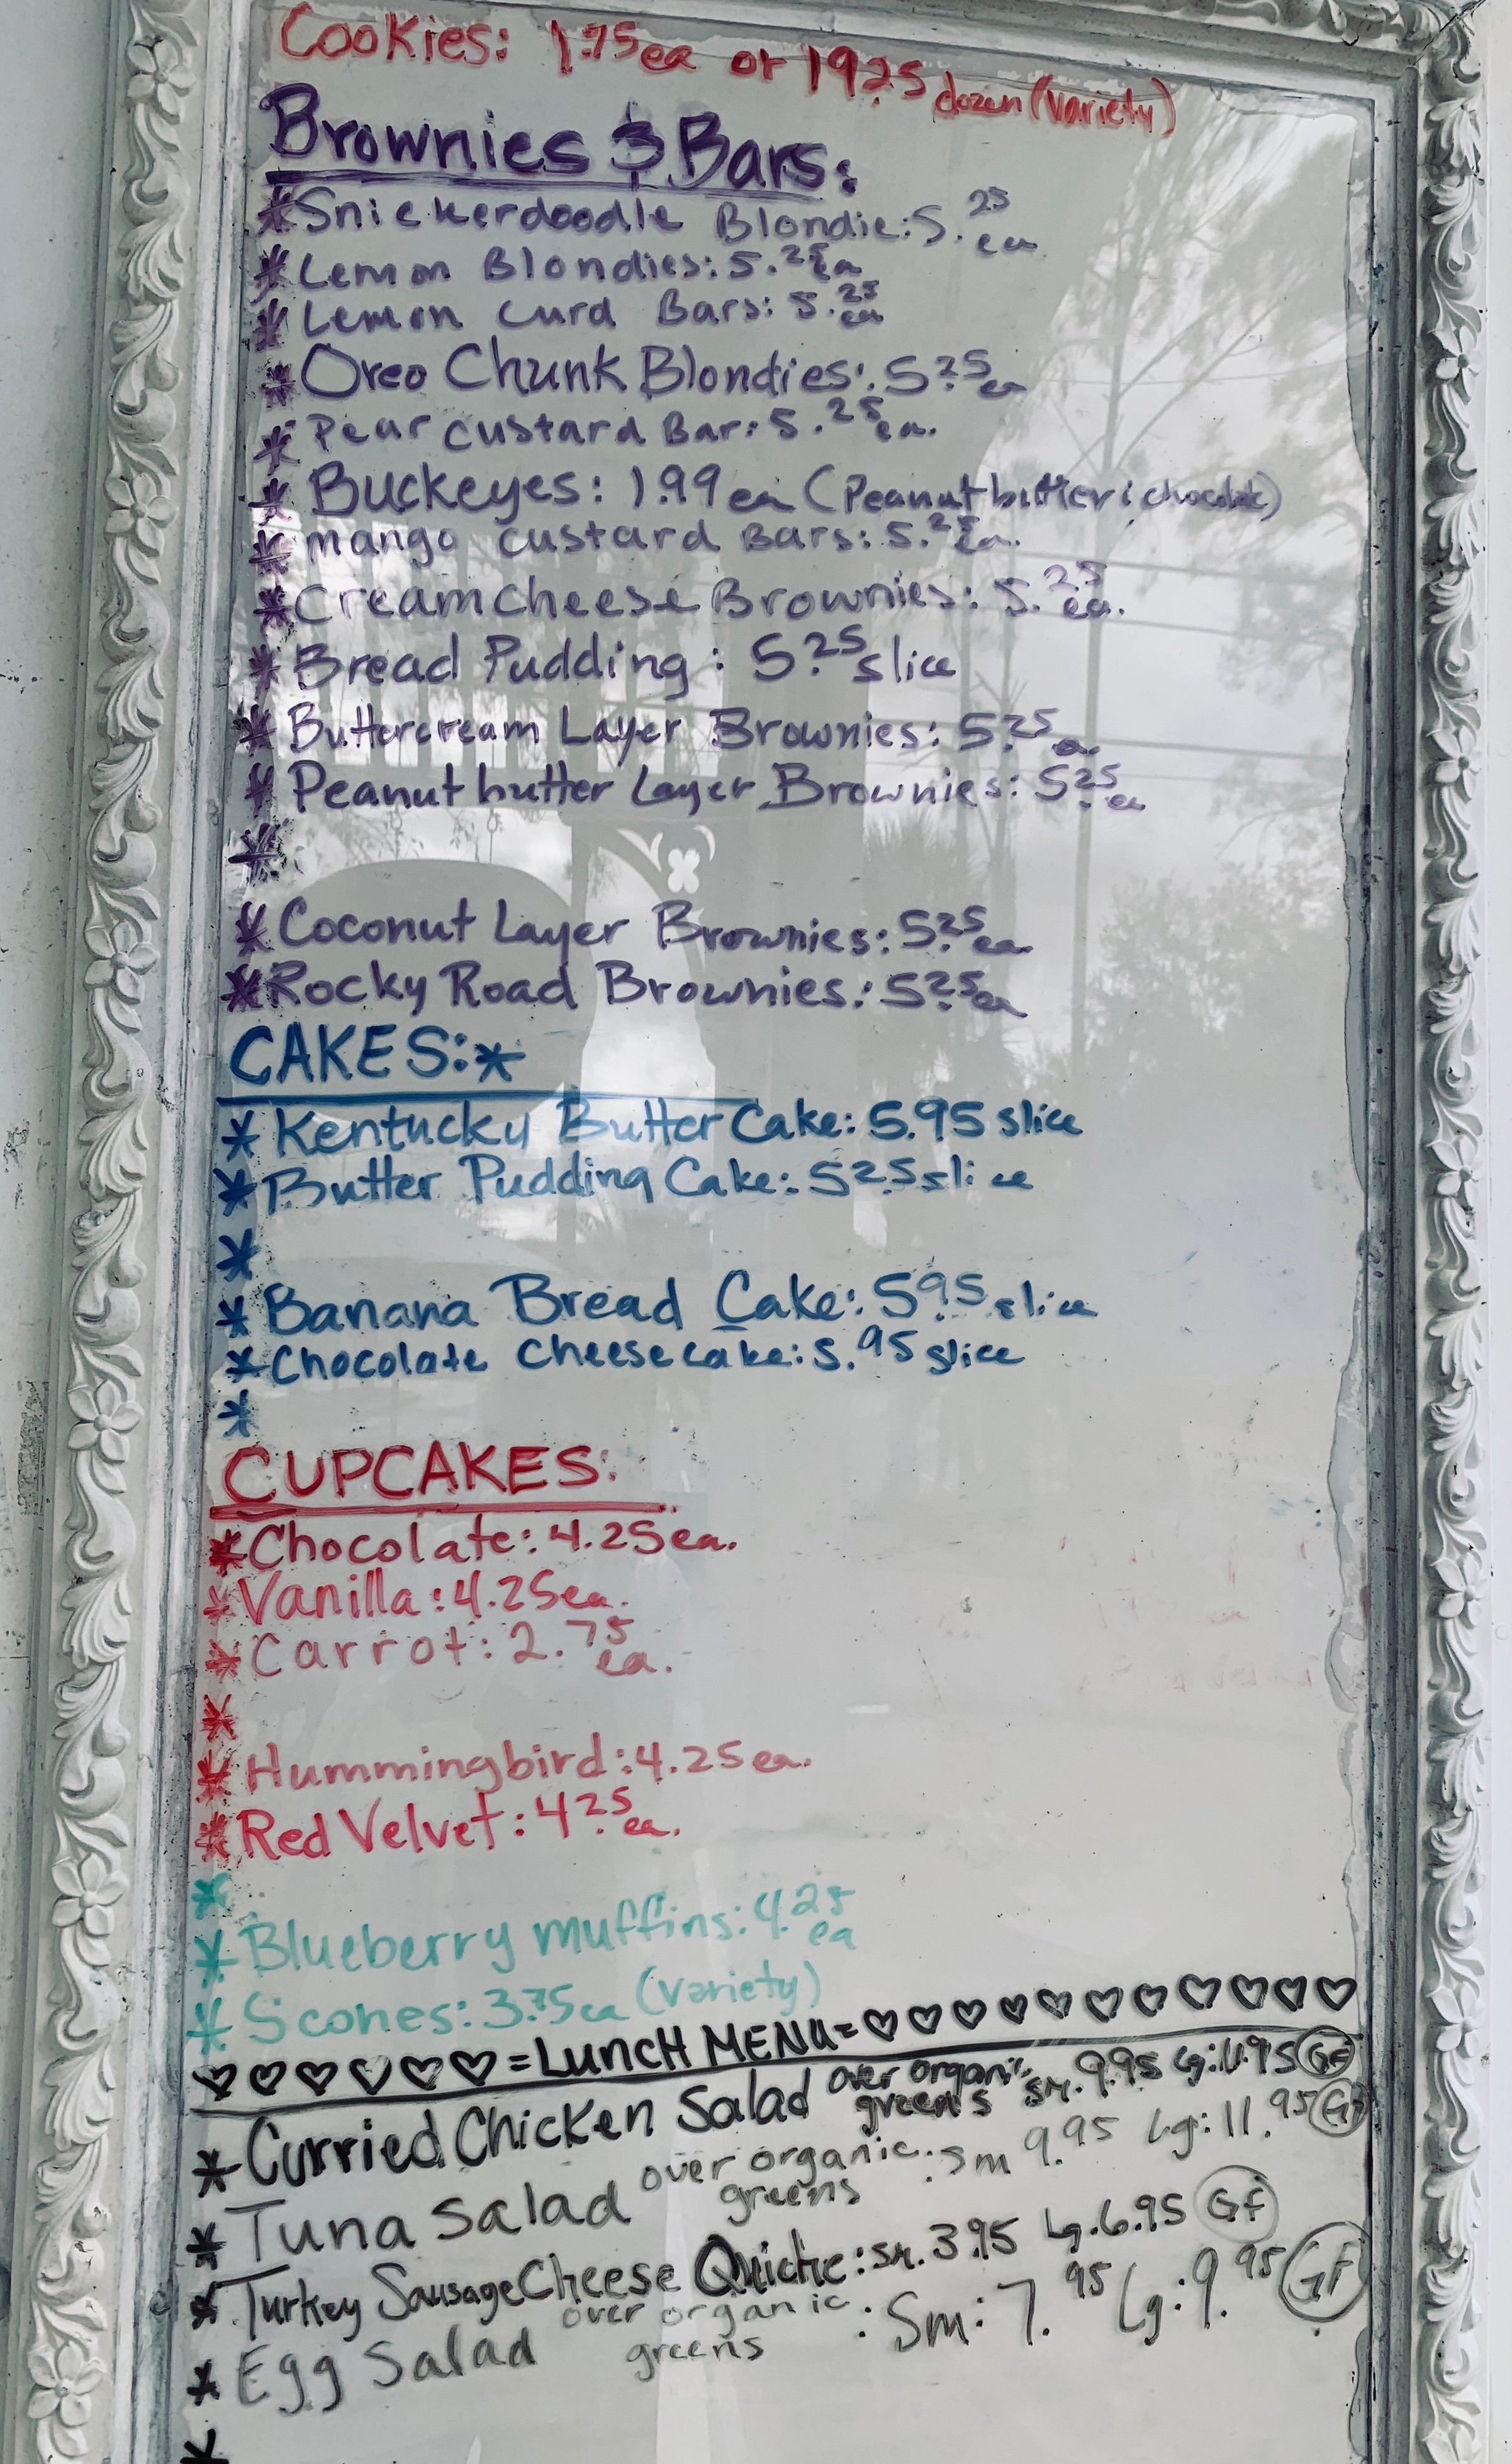 Cookies: 1.75ea or 19.25 dozen (variety)
Brownies & Bars:
*Snickerdoodle Blondie: 5.25 ea
*Lemon Blondies: 5.25 ea
*Lemon Curd Bars: 5.25 ea
*Oreo Chunk Blondies: 5.25 ea
*Pear custard Bar: 5.25 ea.
*Buckeyes: 1.99 ea (Peanut butter & chocolate)
*mango custard Bars: 5.25 ea.
*Creamcheese Brownies: 5.25 ea.
*Bread Pudding: 5.25 slice
*Buttercream Layer Brownies: 5.25 ea
*Peanut butter Layer Brownies: 5.25 ea
*
*Coconut Layer Brownies: 5.25 ea
*Rocky Road Brownies: 5.25 ea
CAKES:*
*Kentucky Butter Cake: 5.95 slice
*Butter Pudding Cake: 5.25 slice
*
*Banana Bread Cake: 5.95 slice
*Chocolate Cheesecake: 5.95 slice
*
CUPCAKES:
*Chocolate: 4.25ea.
*Vanilla: 4.25ea.
*Carrot: 2.75 ea.
*
*Hummingbird: 4.25ea.
*Red Velvet: 4.25 ea.
*
*Blueberry muffins: 4.25 ea
*Scones: 3.75ea (variety)
♡♡♡♡♡♡=LUNCH MENU=♡♡♡♡♡♡♡♡♡♡♡
*Curried Chicken Salad over organic greens sm. 9.95 Lg: 11.95 GF
*Tuna Salad over organic greens: Sm 9.95 Lg: 11.95 GF
*Turkey Sausage Cheese Quiche: sm. 3.95 Lg. 6.95 GF
*Egg Salad over organic greens: Sm: 7.95 Lg: 9.95 GF
*